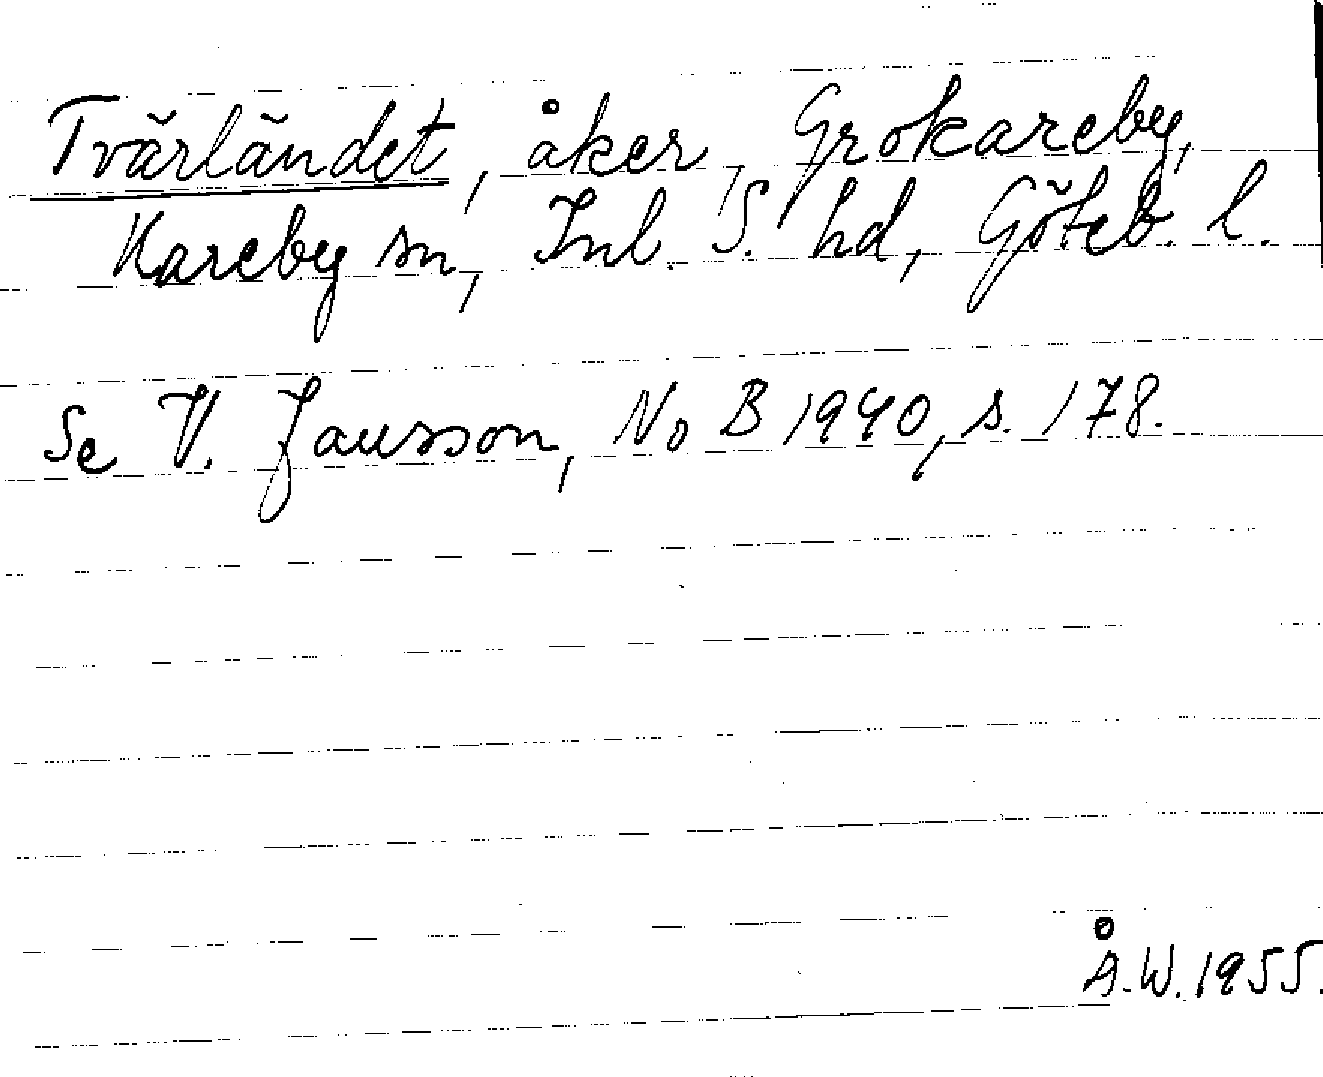 Tvärländet, åker, Grokareby,
Kareby sn, Inl. S. hd, Göteb. l.
Se V. Jansson, NoB 1940, s. 178.
Å.W. 1955.